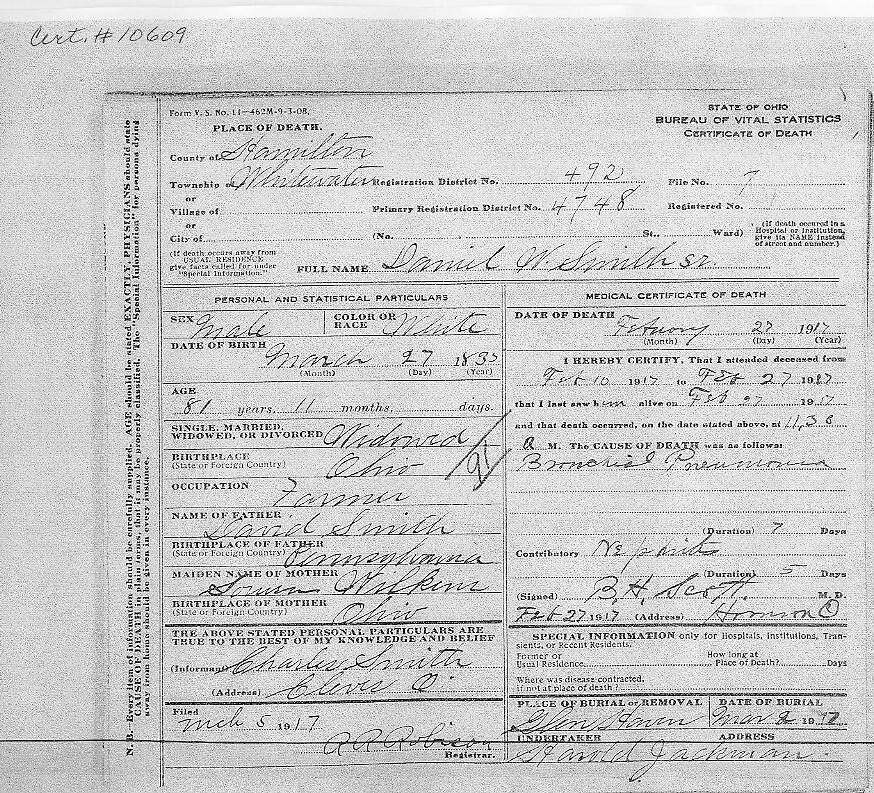 Cert. # 10609
Form V. S. No. 11—462M-9-3-08.
STATE OF OHIO
BUREAU OF VITAL STATISTICS
CERTIFICATE OF DEATH
PLACE OF DEATH.
County of Hamilton
Township of Whitewater Registration District No. 492 File No. 7
or
Village of Primary Registration District No. 4748 Registered No.
or
City of (No. St., Ward)
(If death occured in a Hospital or Institution, give its NAME instead of street and number.)
(If death occurs away from USUAL RESIDENCE give facts called for under "Special Information.")
FULL NAME Daniel W. Smith sr.
PERSONAL AND STATISTICAL PARTICULARS
SEX Male COLOR OR RACE White
DATE OF BIRTH March 27 1835
(Month) (Day) (Year)
AGE
81 years, 11 months, days.
SINGLE, MARRIED, WIDOWED, OR DIVORCED Widowed
BIRTHPLACE (State or Foreign Country) Ohio
OCCUPATION Farmer
NAME OF FATHER David Smith
BIRTHPLACE OF FATHER (State or Foreign Country) Pennsylvania
MAIDEN NAME OF MOTHER Wilkins
BIRTHPLACE OF MOTHER (State or Foreign Country) Ohio
THE ABOVE STATED PERSONAL PARTICULARS ARE TRUE TO THE BEST OF MY KNOWLEDGE AND BELIEF
(Informant) Charles Smith
(Address) Cleves O.
Filed
Mch 5 1917
A R Robison
Registrar.
MEDICAL CERTIFICATE OF DEATH
DATE OF DEATH
February 27 1917
(Month) (Day) (Year)
I HEREBY CERTIFY, That I attended deceased from
Feb 10 1917 to Feb 27 1917
that I last saw him alive on Feb 27 1917
and that death occurred, on the date stated above, at 11,30
a M. The CAUSE OF DEATH was as follows:
Bronchial Pneumonia
(Duration) 7 Days
Contributory
(Duration) 5 Days
(Signed) B. H. Scott. M. D.
Feb 27 1917 (Address) Harrison O
SPECIAL INFORMATION only for Hospitals, Institutions, Transients, or Recent Residents.
Former or Usual Residence How long at Place of Death? Days
Where was disease contracted, if not at place of death?
PLACE OF BURIAL or REMOVAL DATE OF BURIAL
Glen Haven Mar 2 1917
UNDERTAKER ADDRESS
Harold Jackman
N. B.—Every item of information should be carefully supplied. AGE should be stated EXACTLY. PHYSICIANS should state
CAUSE OF DEATH in plain terms, that it may be properly classified. The "Special Information" for persons dying
away from home should be given in every instance.